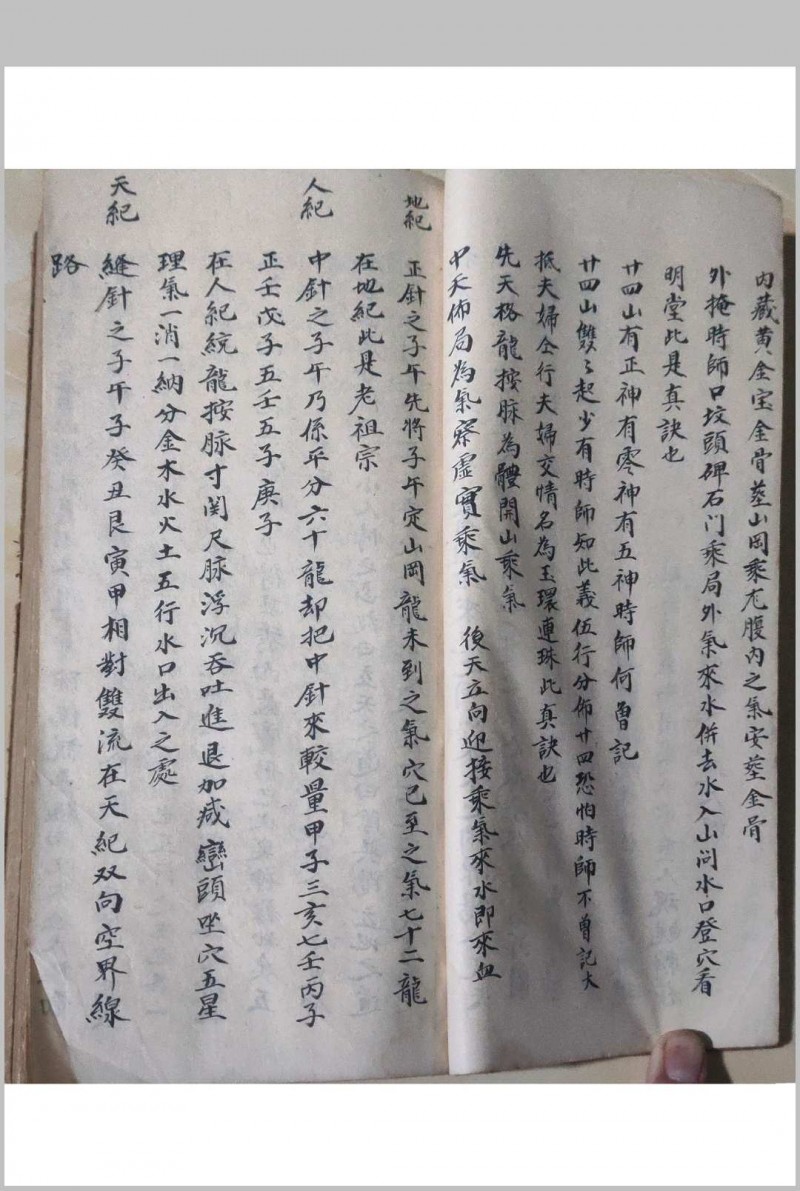 內藏黄金宝金骨塟山岡乘龙腹內之氣安塟金骨
外掩時師口坟頭碑石门乘局外氣來水併去水入山问水口登穴看
明堂此是真訣也
廿四山有正神有零神有五神時師何曾記
廿四山雙々起少有時師知此義伍行分佈廿四恐怕時師不曾記大
抵夫婦仝行夫婦交情名為玉環連珠此真訣也
先天格龍按脉為體開山乘氣
中天佈局為氣察虛實乘氣 後天立向迎接乘氣來水即來血
地紀 正針之子午先將子午定山岡龍未到之氣穴已至之氣七十二龍
在地紀此是老祖宗
人紀 中針之子午乃係平分六十龍却把中針來較量甲子三亥七壬丙子
正壬戊子五壬五子庚子
在人紀統龍按脉寸関尺脉浮沉吞吐進退加减巒頭坐穴五星
理氣一消一納分金木水火土五行水口出入之處
天紀 縫針之子午子癸丑艮寅甲相對雙流在天紀双向空界線
路